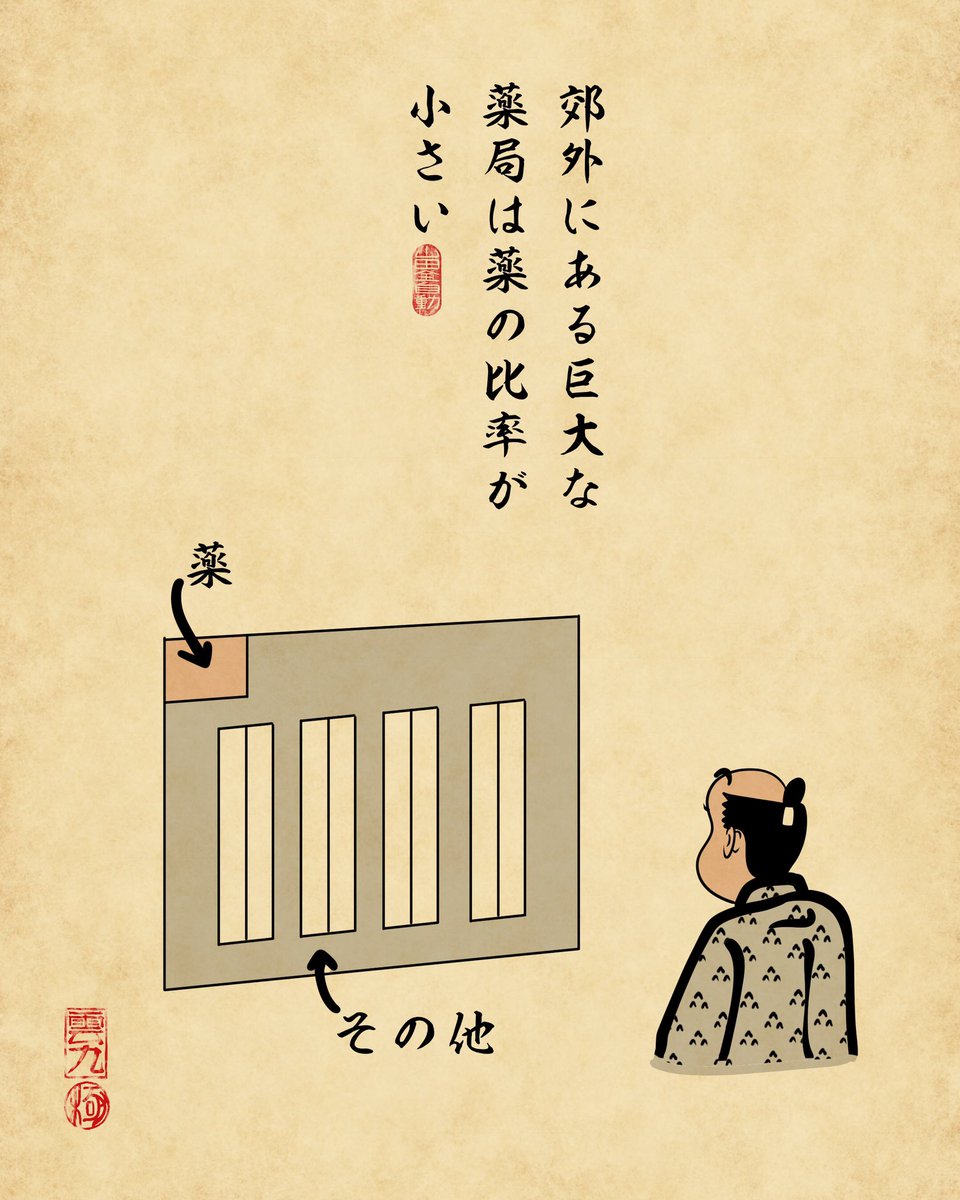 郊外にある巨大な
薬局は薬の比率が
小さい
薬
その他
雲九
極